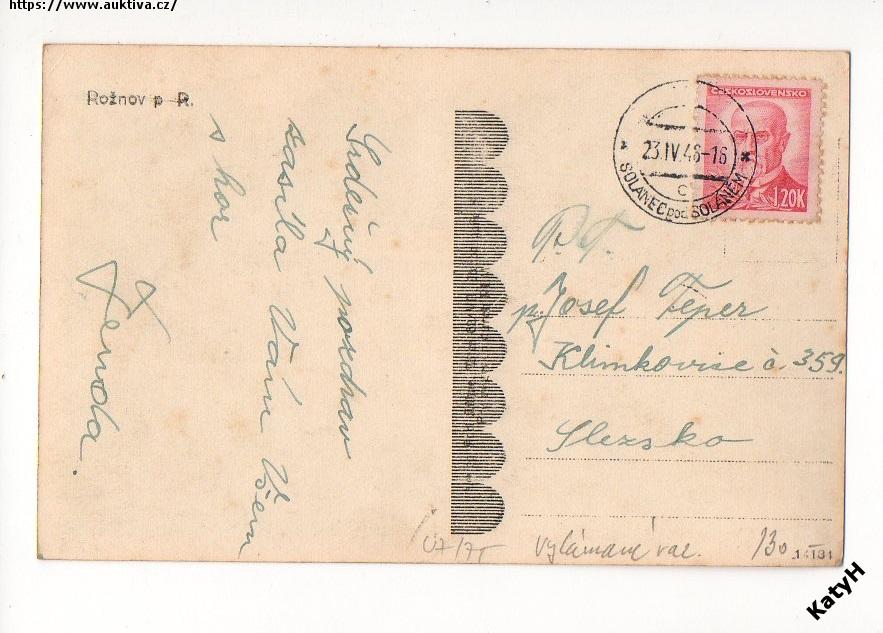 https://www.auktiva.cz/
Rožnov p R.
Srdečný pozdrav
zasílá Vám Všem
s hor
ČESKOSLOVENSKO
1,20K
23.IV.46-16
SOLANEC pod SOLÁNĚM
C
P. T.
p. Josef Feper
Klimkovice č. 359.
Slezsko
vylámané
130
14131
KatyH